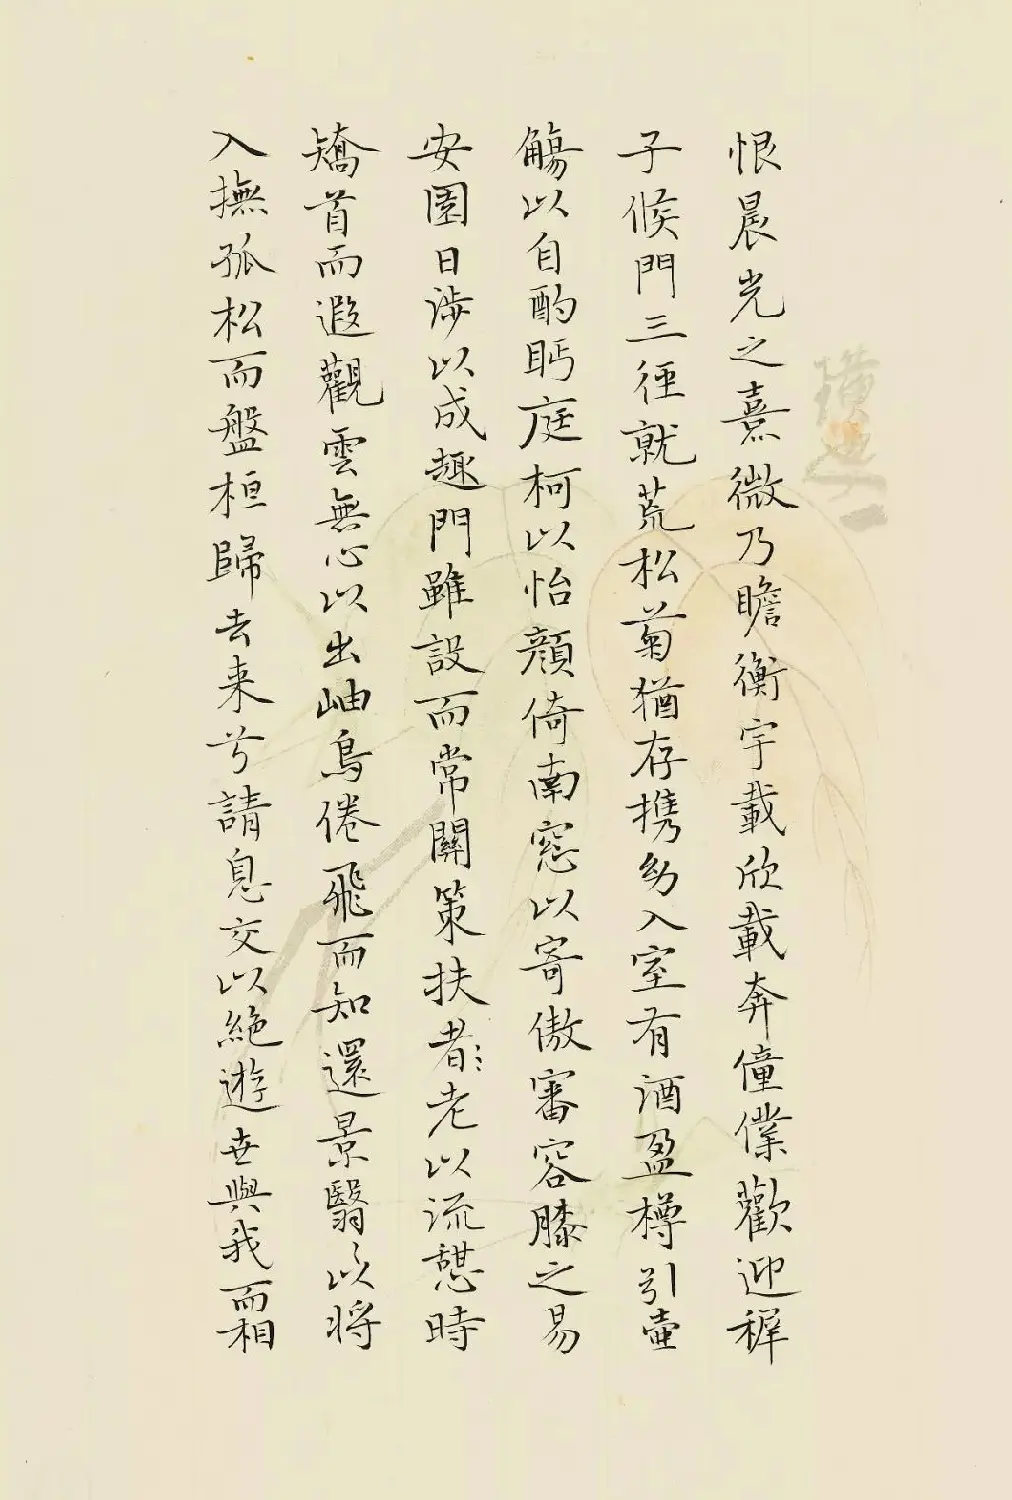 恨晨光之熹微乃瞻衡宇載欣載奔僮僕歡迎稺
子候門三徑就荒松菊猶存携幼入室有酒盈樽引壺
觴以自酌眄庭柯以怡顔倚南窓以寄傲審容膝之易
安園日涉以成趣門雖設而常關策扶者老以流憩時
矯首而遐觀雲無心以出岫鳥倦飛而知還景翳以將
入撫孤松而盤桓歸去来兮請息交以絶遊世與我而相